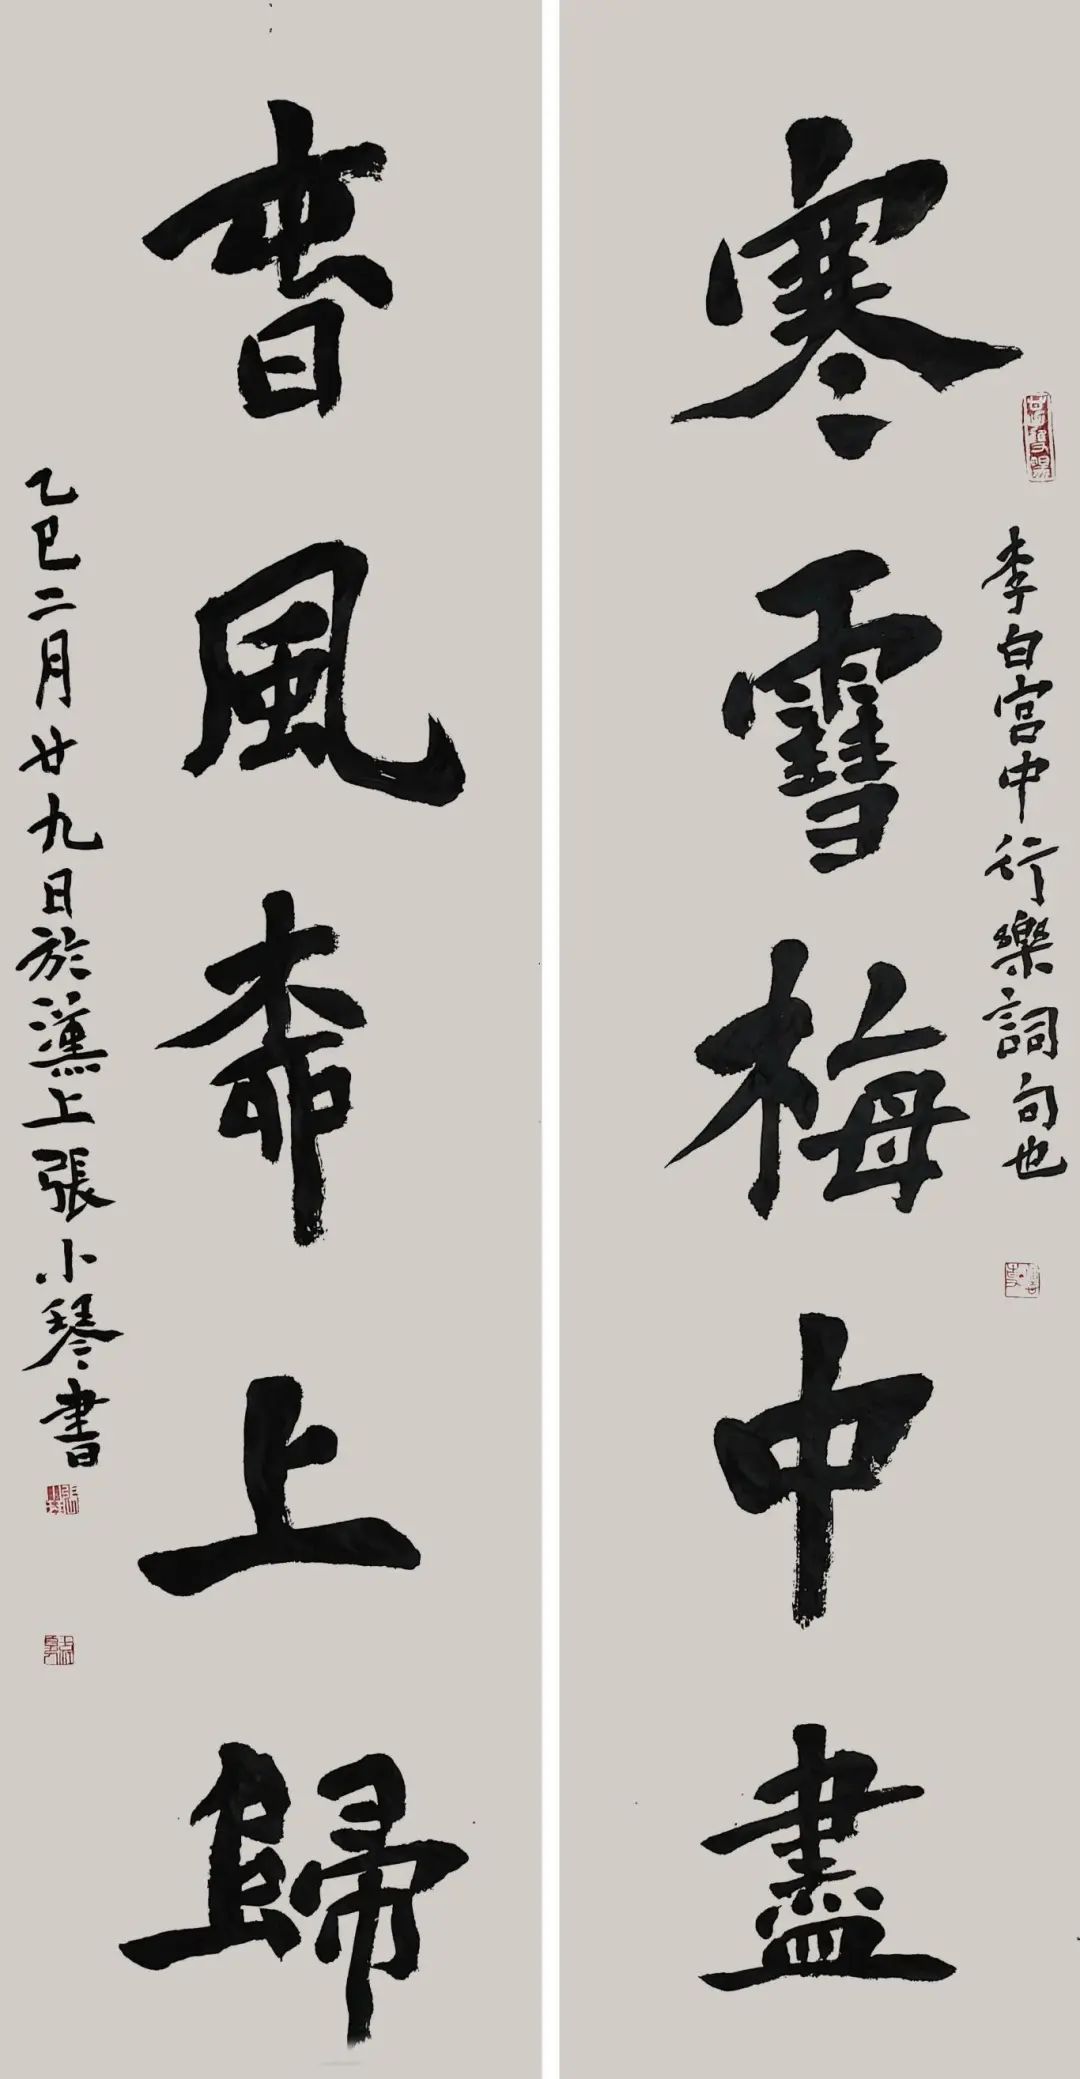 寒雪梅中盡
李白宮中行樂詞句也
春風柳上歸
乙巳二月廿九日於上張小琴書